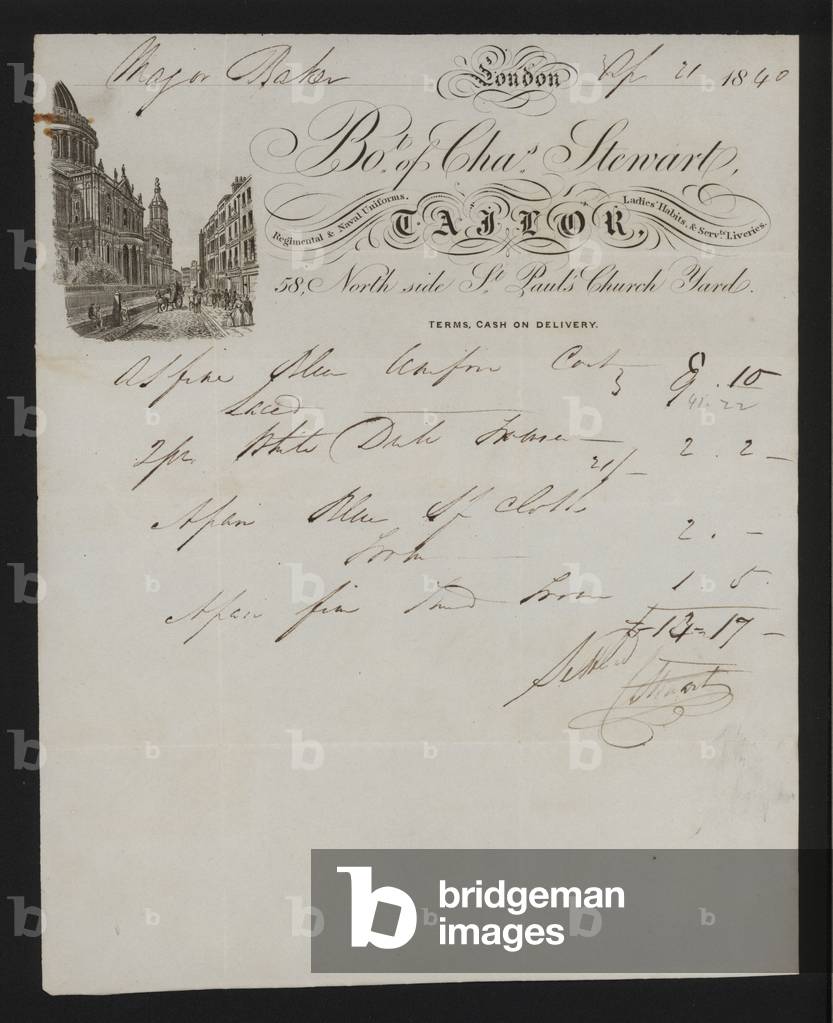 Major Baker London Ap 21 1840
Bot. of Chas. Stewart,
Regimental & Naval Uniforms. TAILOR, Ladies' Habits, & Servts. Liveries.
58, North side St. Paul's Church Yard.
TERMS, CASH ON DELIVERY.
A Sfine Blue Uniform Coat 10
Laced 41.22
2 pr White Trouser 21/- 2. 2 -
A pair Blue Sf Cloth
2. -
A pair fine 1 5.
£ 17 -
Settled
CStewart
b bridgeman images